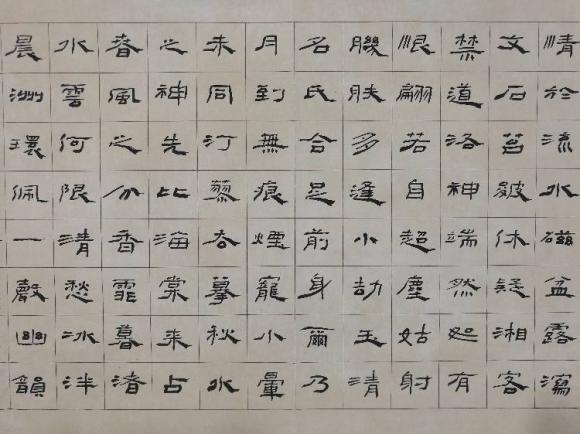 情於流水磁盆露瀉
文石苔皴休疑湘客
禁道洛神端然恕有
恨翩若自超塵姑射
肤多逢小劫玉清
名氏合是前身爾乃
月到無痕煙寵小暈
未同汀蓼摹秋水
之神先比海棠来占
春風之分香霏暮渚
水雲何限清愁冰泮
晨洲環佩一聲幽韻